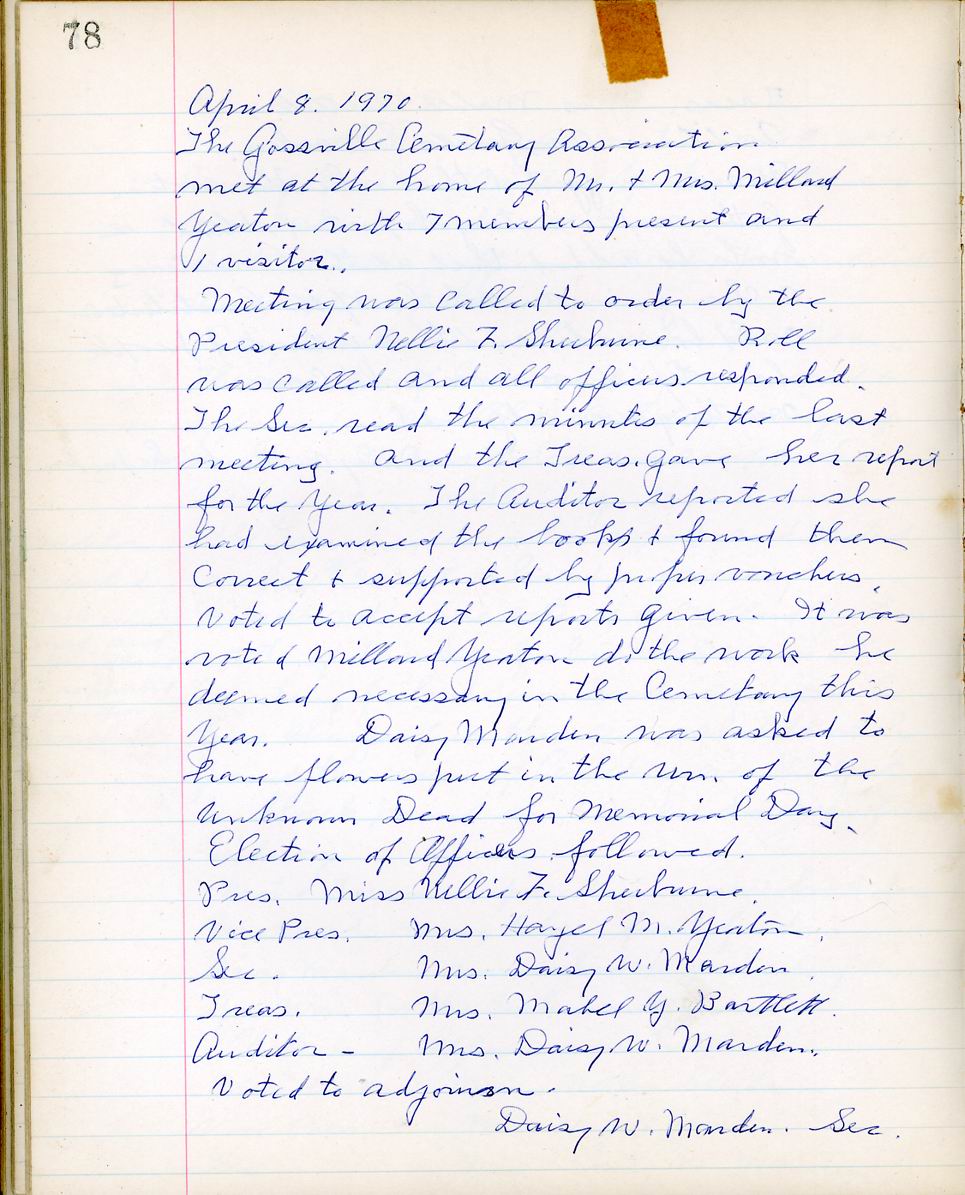 78
April 8. 1970.
The Gossville Cemetary Association
met at the home of Mr. + Mrs. Millard
Yeaton with 7 members present and
1 visitor.
Meeting was called to order by the
President Nellie F. Sherburne. Roll
was called and all officers responded.
The Sec. read the minutes of the last
meeting. and the Treas. gave her report
for the Year. The Auditor reported she
had examined the books + found them
Correct + supported by proper vouchers.
Voted to accept reports given. It was
voted Millard Yeaton do the work he
deemed necessary in the Cemetary this
Year. Daisy Marden was asked to
have flowers put in the Urn. of the
Unknown Dead for Memorial Day.
Election of Officers followed.
Pres. Miss Nellie F. Sherburne.
Vice Pres. Mrs. Hazel M. Yeaton.
Sec. Mrs. Daisy W. Marden.
Treas. Mrs. Mabel Y. Bartlett.
Auditor - Mrs. Daisy W. Marden.
Voted to adjourn.
Daisy W. Marden. Sec.